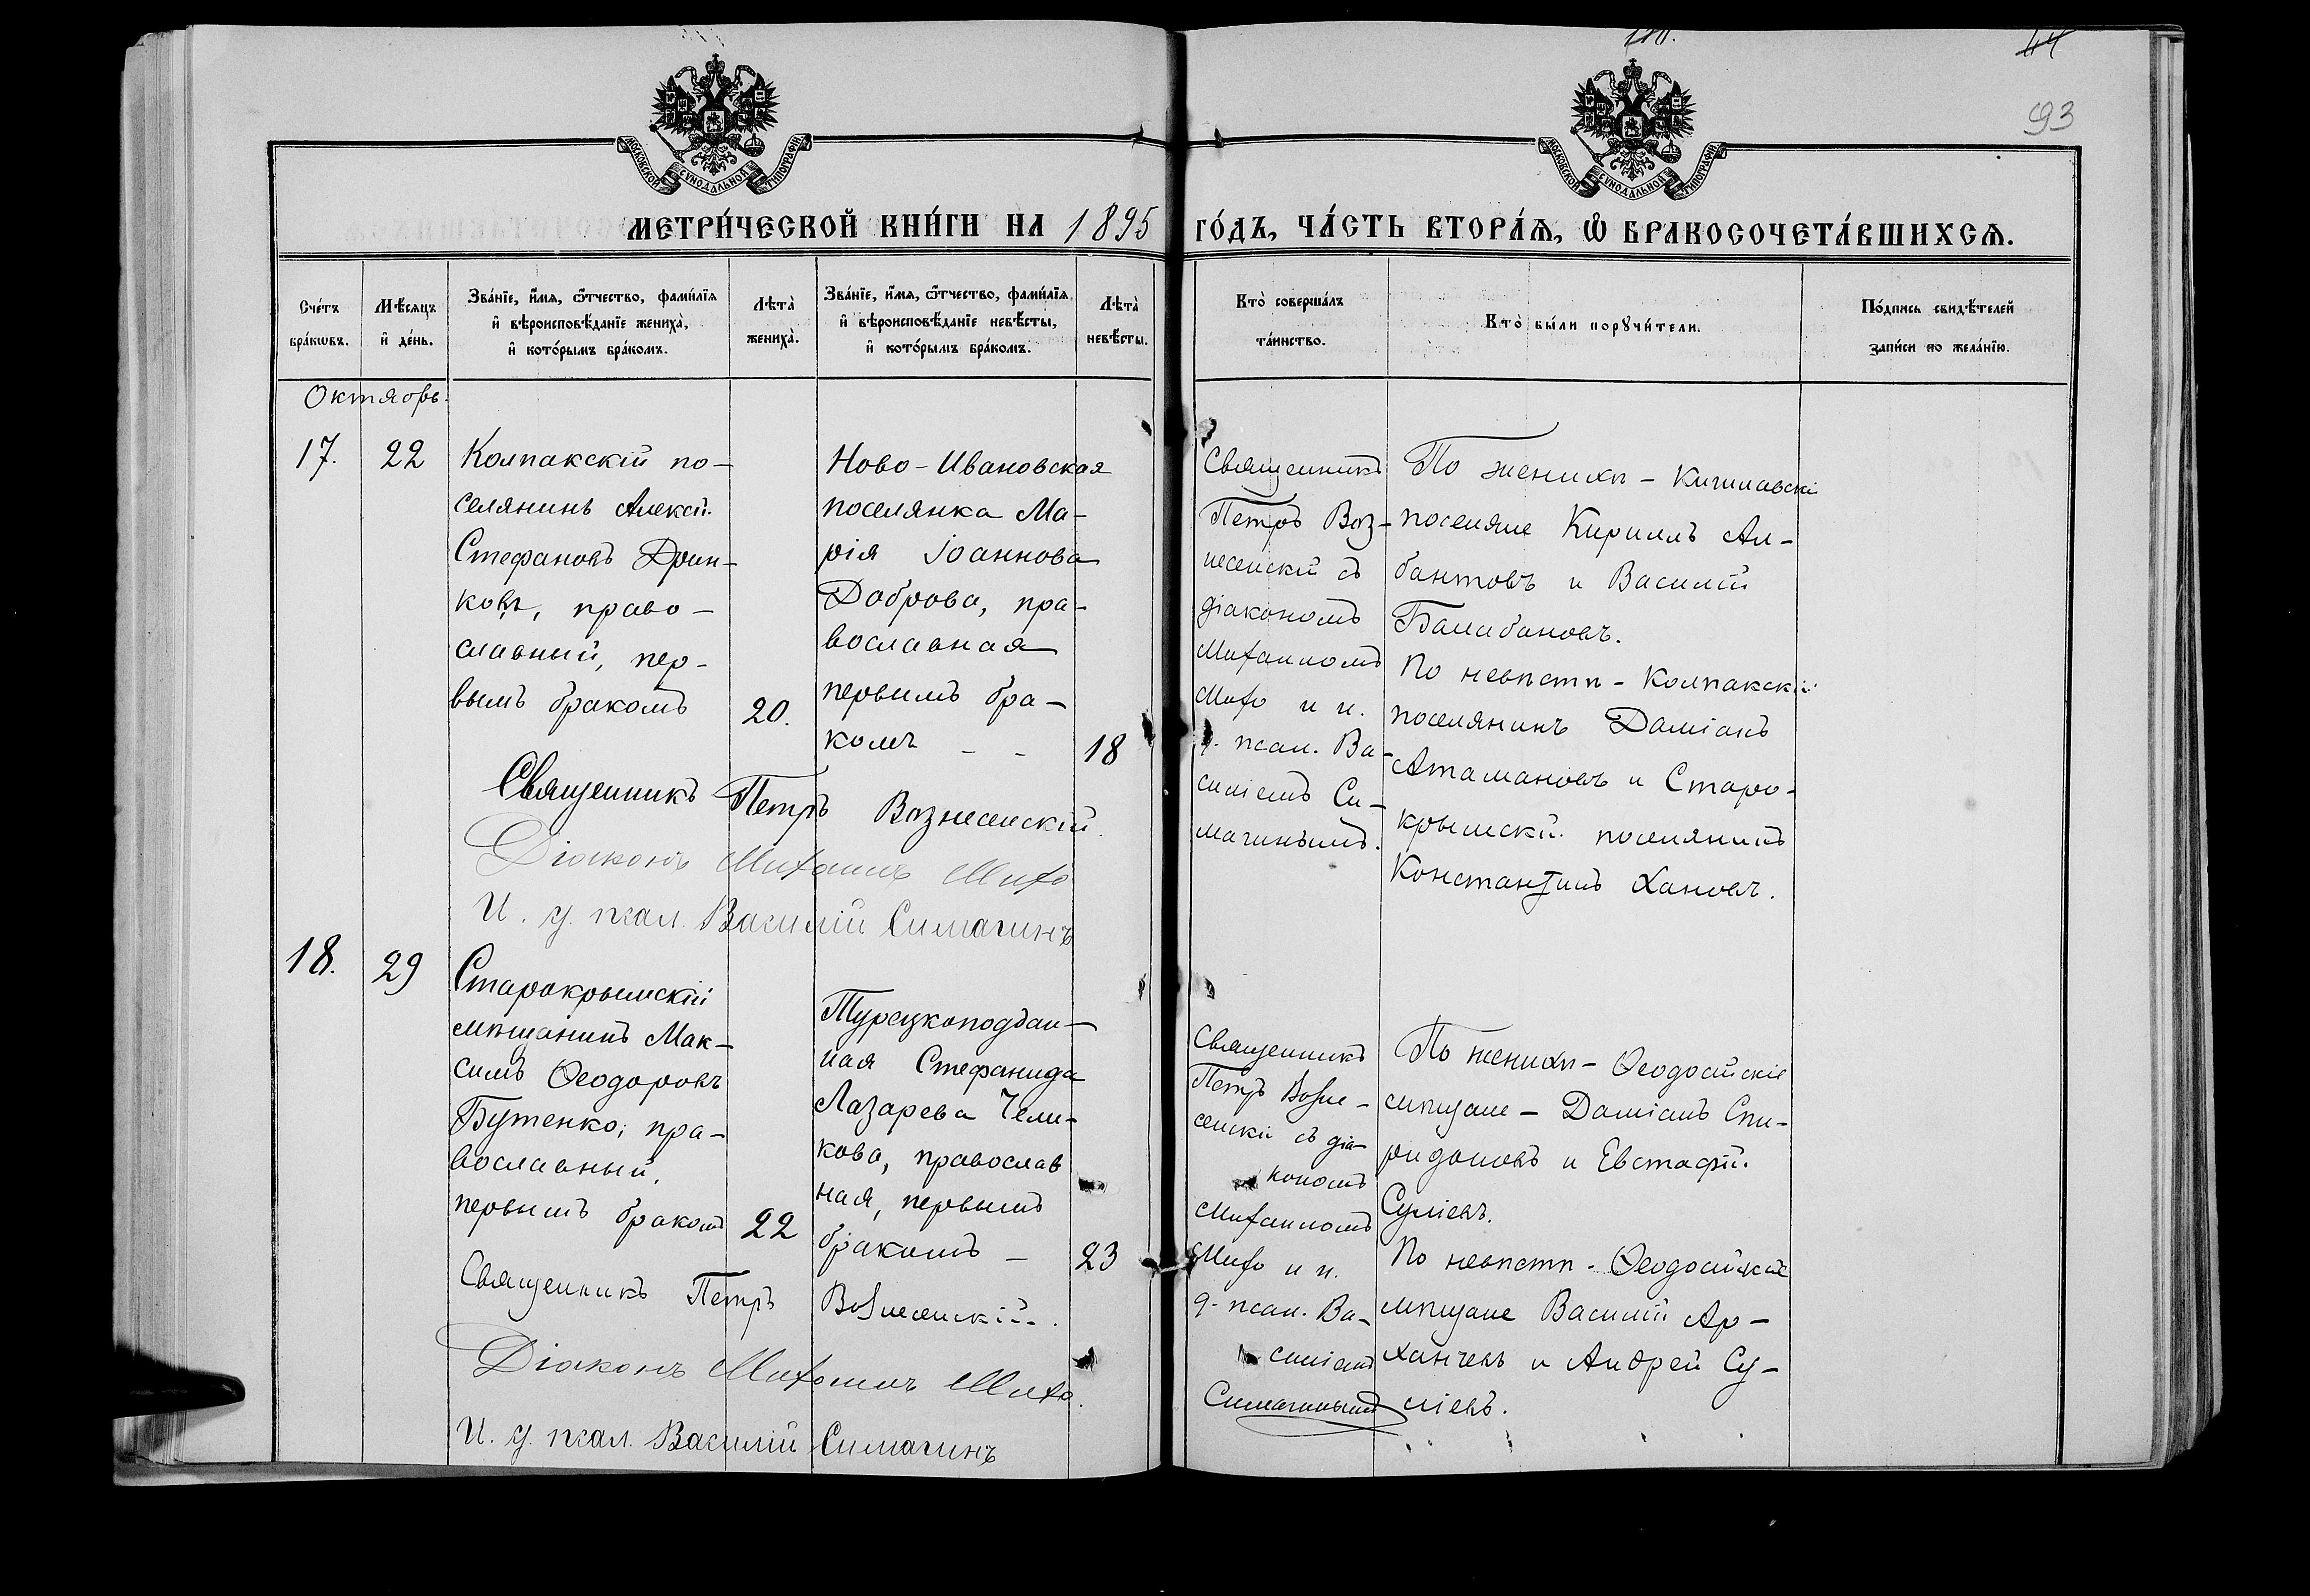 110.
44
93
МОСКОВСКОЙ СѴНОДАЛЬНОЙ ТИПОГРАФІИ
МОСКОВСКОЙ СѴНОДАЛЬНОЙ ТИПОГРАФІИ
МЕТРИ́ЧЕСКОЙ КНИ́ГИ НА 1895 ГО́ДЪ, ЧА́СТЬ ВТОРА́Ѧ, Ѡ҆ БРАКОСОЧЕТА́ВШИХСѦ.
Сче́тъ
бра́кѡвъ.
Мѣ́сяцъ
и҆ де́нь.
Зва́нїе, и҆́мѧ, ѻ҆́тчество, фами́лїѧ
и҆ вѣроисповѣ́данїе жениха̀,
и҆ кото́рымъ бра́комъ.
Лѣта̀
жениха̀.
Зва́нїе, и҆́мѧ, ѻ҆́тчество, фами́лїѧ
и҆ вѣроисповѣ́данїе невѣ́сты,
и҆ кото́рымъ бра́комъ.
Лѣта̀
невѣ́сты.
Кто̀ соверша́лъ
та́инство.
Кто̀ бы́ли порꙋчи́тели.
По́дпись свидѣ́телей
за́писи по жела́нїю.
Октябрь.
17.
22
Колпакскій по-
селянинъ Алексій
Стефановъ Дрин-
ковъ, право-
славный, пер-
вымъ бракомъ
20.
Ново-Ивановская
поселянка Ма-
рія Іоаннова
Доброва, пра-
вославная
первымъ бра-
комъ - -
18
Священникъ
Петръ Воз-
несенскій съ
діакономъ
Михаиломъ
Михо и и.
д. псал. Ва-
силіемъ Си-
магинымъ.
По женихѣ -
поселяне Кириллъ Ал-
бантовъ и Василій
Балабановъ.
По невѣстѣ - Колпакскій
поселянинъ Даміанъ
Атамановъ и Старо-
крымскій поселянинъ
Константинъ Хановъ.
Священникъ Петръ Вознесенскій.
Діаконъ Михаилъ Михо
И. д. псал. Василій Симагинъ
18.
29
Старокрымскій
мѣщанинъ Мак-
симъ Ѳеодоровъ
Бутенко, пра-
вославный,
первымъ бракомъ
22
Турецкоподдан-
ная Стефанида
Лазарева Чели-
кова, православ
ная, первымъ
бракомъ -
23
Священникъ
Петръ Возне-
сенскій съ діа-
кономъ
Михаиломъ
Михо и и.
д. псал. Ва-
силіемъ
Симагинымъ
По женихѣ - Ѳеодосійскіе
мѣщане - Даміанъ Спи-
ридоновъ и Евстафій
Суліевъ.
По невѣстѣ - Ѳеодосійскіе
мѣщане Василій Ар-
ханчевъ и Андрей Су-
ліевъ.
Священникъ Петръ Вознесенскій.
Діаконъ Михаилъ Михо.
И. д. псал. Василій Симагинъ